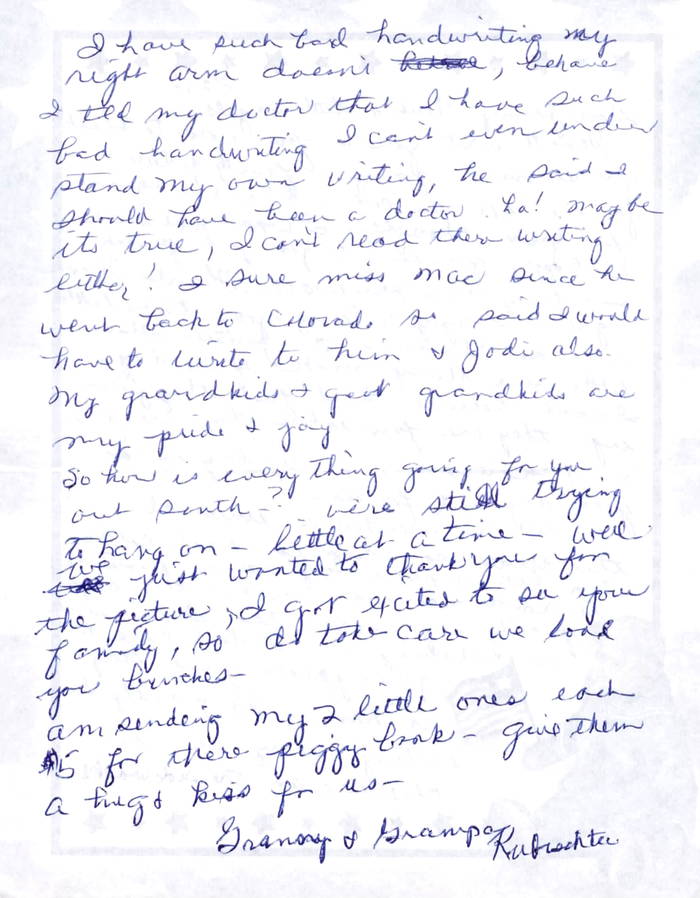 I have such bad handwriting my
right arm doesn't , behave
I told my doctor that I have such
bad handwriting I can't even under
stand my own writing, he said I
should have been a doctor. ha! maybe
its true, I can't read there writing
either! I sure miss Mac since he
went back to Colorado so said I would
have to write to him & Jodi also.
My grandkids & great grandkids are
my pride & joy
So how is everything going for you
out south-? we're still trying
to hang on - little at a time - well
we just wanted to thank you for
the picture, I got excited to see your
family, so do take care we love
you bunches-
am sending my 2 little ones each
$5 for there piggy bank - give them
a hug & kiss for us-
Granny & Grampa